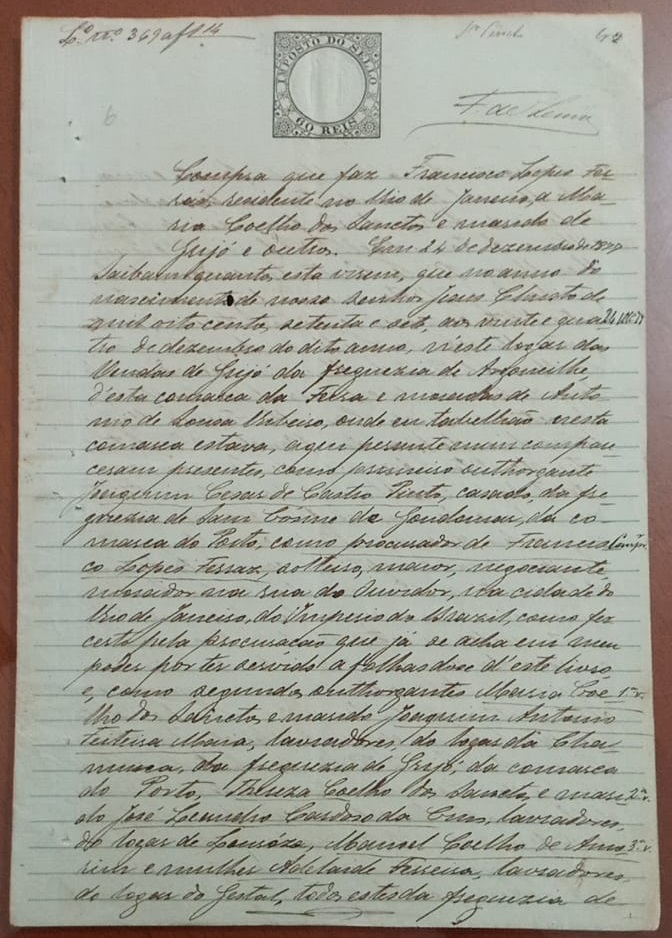 L.º nº 369 a fl 14
IMPOSTO DO SELLO
60 REIS
F. de
Compra que faz Francisco Lopes Fer-
raz, residente no Rio de Janeiro, a Ma-
ria Coelho dos Sanctos e marido de
Grijó e outros. Em 24 de dezembro de 1877
Saibam quantos esta virem, que no anno do
nascimento de nosso Senhor Jesus Christo de
mil oito cento, setenta e sete, aos vinte e qua-
tro de dezembro do dito anno, n'este logar das
Vendas de Grijó da freguezia de Argoncilhe,
d'esta comarca da Feira e moradas de Anto-
nio de Sousa Ribeiro, onde eu tabellião nesta
comarca estava, aqui perante mim compare-
ceram presentes, como primeiro outhorgante
Joaquim Cesar de Castro Pinto, casado, da fre-
guezia de Sam Cósme de Gondomar, da co-
marca do Porto, como procurador de Francis-
co Lopes Ferraz, solteiro, maior, negociante
morador na rua do Ouvidor, na cidade do
Rio de Janeiro, do Imperio do Brazil, como fez
certo pela procuração que já se acha em meu
poder por ter servido a folhas dose d'este livro
e, como segundos outhorgantes Maria Coe- 1.os v.
lho dos Sanctos e marido Joaquim Antonio
Teixeira Maia, lavradores, do logar da Cha-
musca, da freguezia de Grijó, da comarca
do Porto, Thereza Coelho dos Sanctos, e mari- 2.os v.
do José Leandro Cardoso da Cruz, lavradores,
do logar de Manoel Coelho de Amo- 3.os v.
rim e mulher Adelaide Ferreira, lavradores,
do logar do todos estes da freguezia de